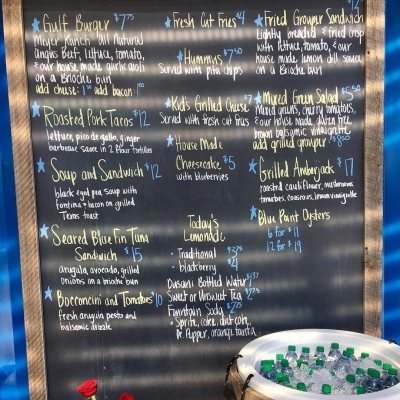 Gulf Burger $7.75
Meyer Ranch all Natural
Angus Beef, lettuce, tomato,
& our house made garlic aioli
on a Brioche bun
add cheese: 1.50 add bacon: 1.00
Roasted Pork Tacos $12
lettuce, pico de gallo, ginger
barbecue sauce in 2 flour tortillas
Soup and Sandwich $12
black eyed pea soup with
fontina & bacon on grilled
Texas toast
Seared Blue Fin Tuna
Sandwich $15
arugula, avocado, grilled
onions on a brioche bun
Bocconcini and Tomatoes $10
fresh arugula pesto and
balsamic drizzle
Fresh Cut Fries $4
Hummus $7.50
Served with pita chips
Kid's Grilled Cheese $7
Served with fresh cut fries
House Made
Cheesecake $5
with blueberries
Today's
Lemonade
• Traditional $3.75
• blackberry $4
Dasani Bottled Water $1.37
Sweet or Unsweet Tea $2.75
Fountain Soda $2.75
• Sprite, coke, diet coke,
Dr. Pepper, orange fanta
Fried Grouper Sandwich $12
Lightly breaded & fried crisp
with lettuce, tomato, & our
house made lemon dill sauce
on a Brioche bun
Mixed Green Salad $5.50
Mixed greens, cherry tomatoes,
& our house made gluten free
brown balsamic vinaigrette
add grilled grouper $8.50
Grilled Amberjack $17
roasted cauliflower, mushrooms,
tomatoes, couscous, lemon vinaigrette
Blue Point Oysters
6 for $11
12 for $19